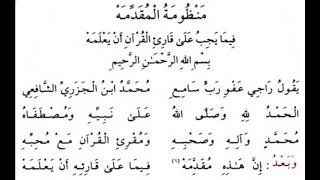 مَنْظُومَةُ الْمُقَدِّمَهْ
فِيمَا يَجِبُ عَلَىٰ قَارِئِ الْقُرْآنِ أَنْ يَعْلَمَهْ
بِسْمِ اللهِ الرَّحْمَٰنِ الرَّحِيمِ
يَقُولُ رَاجِي عَفْوِ رَبٍّ سَامِعِ مُحَمَّدُ ابْنُ الْجَزَرِيِّ الشَّافِعِي
الْحَمْدُ لِلهِ وَصَلَّى اللهُ عَلَىٰ نَبِيِّهِ وَمُصْطَفَاهُ
مُحَمَّدٍ وَآلِهِ وَصَحْبِهِ وَمُقْرِئِ الْقُرْآنِ مَعْ مُحِبِّهِ
وَبَعْدُ : إِنَّ هَٰذِهِ مُقَدِّمَهْ (١) فِيمَا عَلَىٰ قَارِئِهِ أَنْ يَعْلَمَهْ